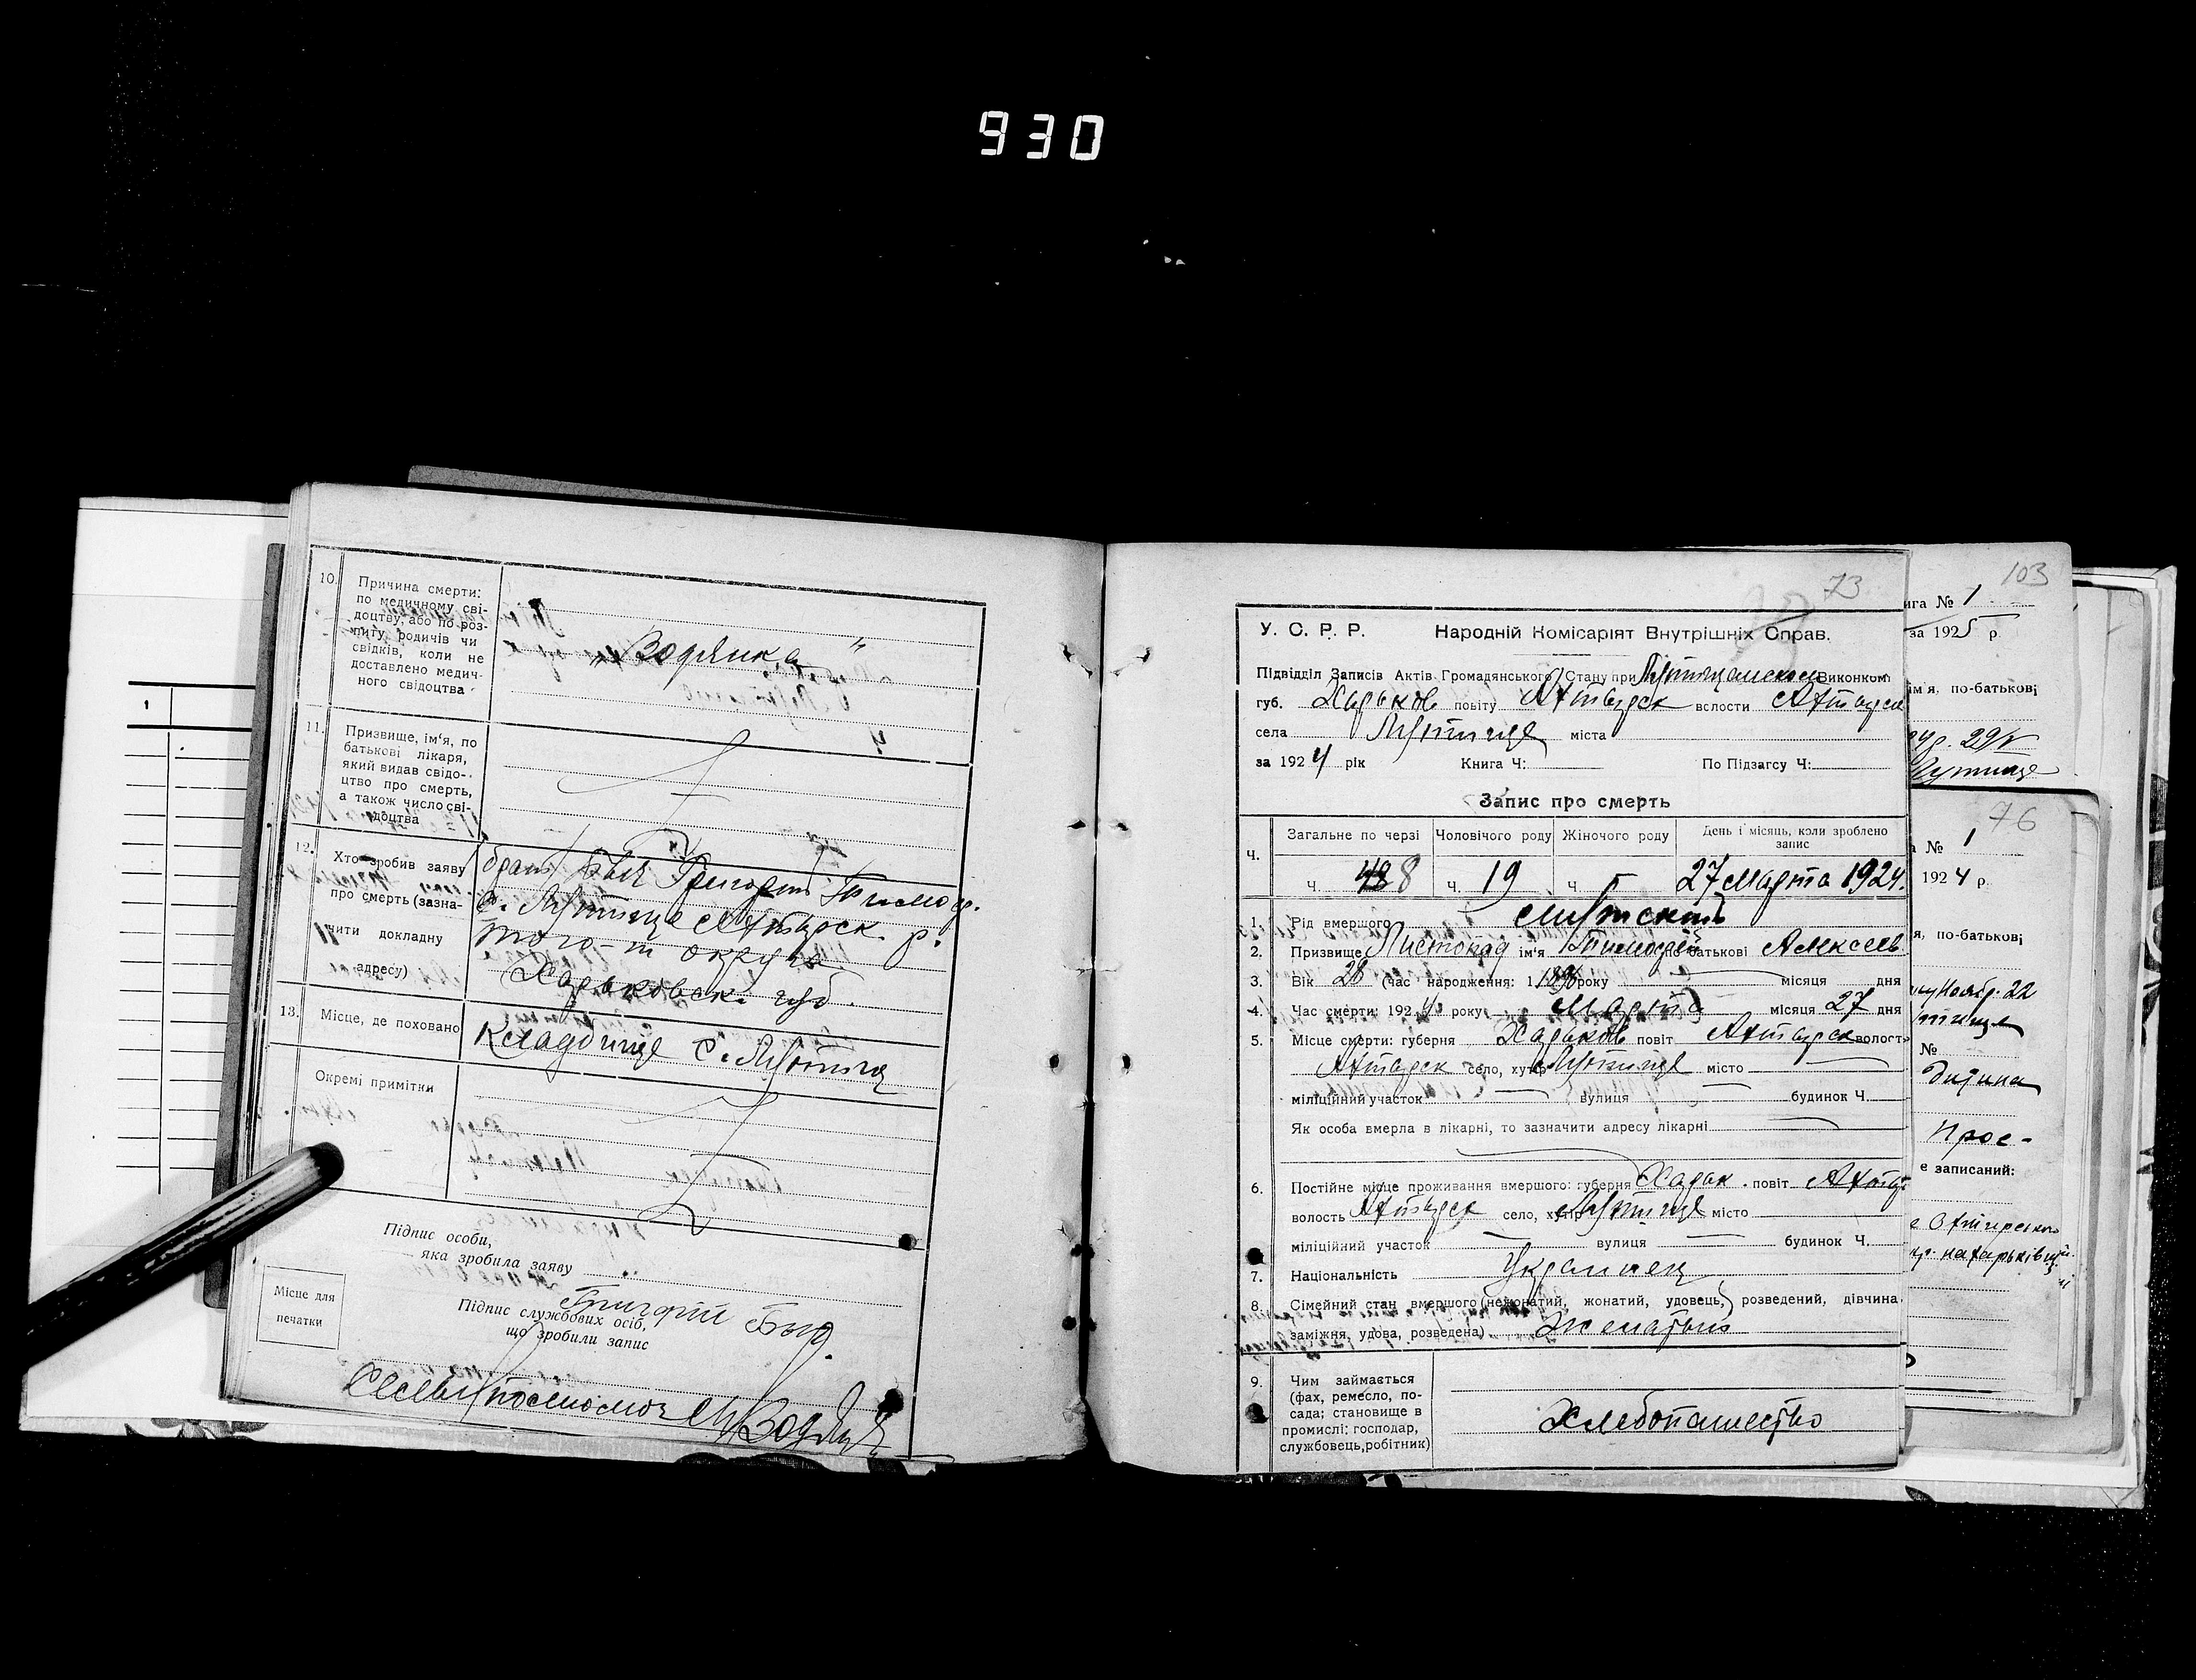 930
1
10. Причина смерти:
по медичному сві-
доцтву, або по роз-
питу родичів чи
свідків, коли не
доставлено медич-
ного свідоцтва
„Водянка"
11. Призвище, ім'я, по
батькові лікаря,
який видав свідо-
цтво про смерть,
а також число сві-
доцтва
12. Хто зробив заяву
про смерть (зазна-
чити докладну
адресу)
брат Григорий Тимоф.
с. Лутище Ахтырск. р.
того-ж округа
Харьковск. губ.
13. Місце, де поховано
Кладбище с. Лутище
Окремі примітки
Підпис особи,
яка зробила заяву
Григорий
Місце для
печатки
Підпис службових осіб,
що зробили запис
73
У. С. Р. Р. Народній Комісаріят Внутрішніх Справ.
Підвідділ Записів Актів Громадянського Стану при Лутищанском Виконком
губ. Харьков повіту Ахтырск волости Ахтырск
села Лутище міста
за 1924 рік Книга Ч: По Підзагсу Ч:
Запис про смерть
Ч. Загальне по черзі Чоловічого роду Жіночого роду День і місяць, коли зроблено
запис
Ч. 8 Ч. 19 Ч. 27 Марта 1924.
1. Рід вмершого Мужской
2. Призвище Листопад ім'я Тимофей по батькові Алексеев
3. Вік 28 (час народження: 1896 року місяця дня
4. Час смерти: 1924 року Марта місяця 27 дня
5. Місце смерти: губерня Харьков повіт Ахтырск волость
Ахтырск село, хутір Лутище місто
міліційний участок вулиця будинок Ч.
Як особа вмерла в лікарні, то зазначити адресу лікарні
6. Постійне місце проживання вмершого: губерня Харьк. повіт Ахтыр
волость Ахтырск село, хутір Лутище місто
міліційний участок вулиця будинок Ч.
7. Національність Украинец
8. Сімейний стан вмершого (нежонатий, жонатий, удовець, розведений, дівчина
заміжня, удова, розведена) Женатый
9. Чим займається
(фах, ремесло, по-
сада; становище в
промислі: господар,
службовець, робітник)
Хлебопашество
103
нига № 1
за 1925 р.
ім'я, по-батькові
Лутище
76
№ 1
1924 р.
я, по-батькові
№
дитина
е записаний: